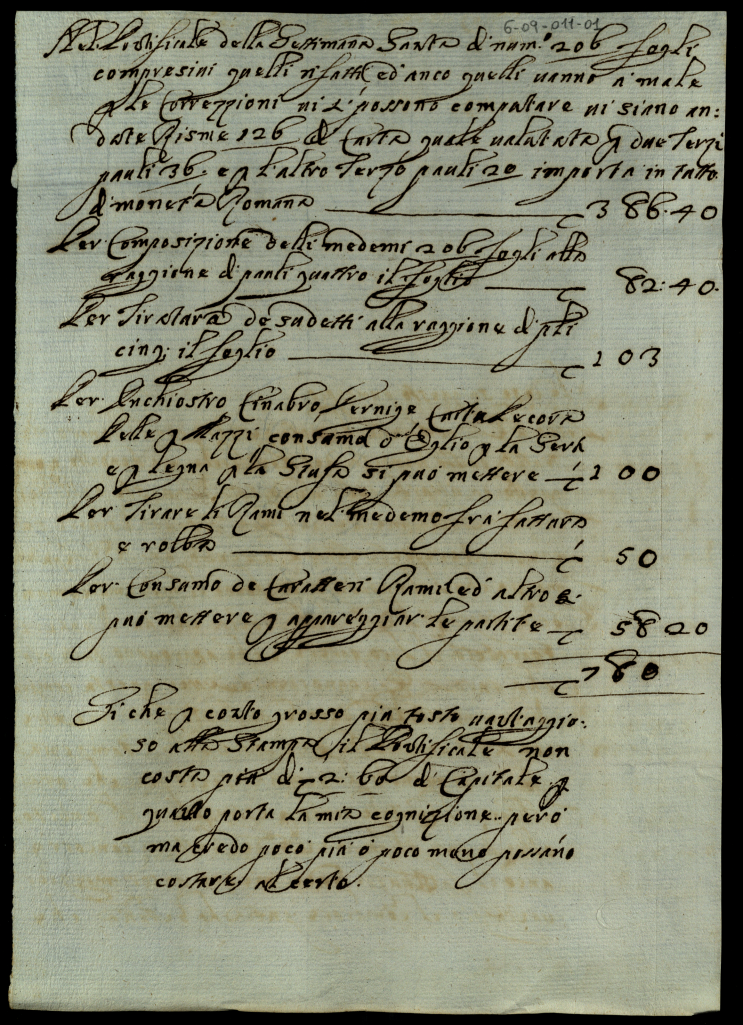 6-09-011-01
Nel Pontificale della Settimana Santa di num.º 206 fogli
compresivi quelli rifatti ed anco quelli vanno a' male
p le Correzzioni vi si possono computare vi siano an:
date Risme 126 di Carta quale valutata p due Terzi
pauli 36. e p l'altro Terzo pauli 20 importa in tutto
di moneta Romana 386.40
Per Composizione delli medemi 206 fogli alla
raggione di pauli quattro il foglio 82:40.
Per Tiratura de sudetti alla raggione di pli
cinq; il foglio 103
Per Inchiostro Cinabro, Vernice
Pelle p Mazzi consumo d'Oglio p la Sera
e p legna p la Stufa si può mettere 100
Per Tirare li Rami nel medemo frà fattura
e robba 50
Per Consumo de Caratteri Rami ed altro
può mettere p appareggiar le partite 58 20
780
Si che p conto grosso più tosto vantaggio:
so alla Stampa, il Pontificale non
costa più di 2: 60 di Capitale p
quanto porta la mia cognizione però
ma credo poco più ò poco meno possano
costare al certo.